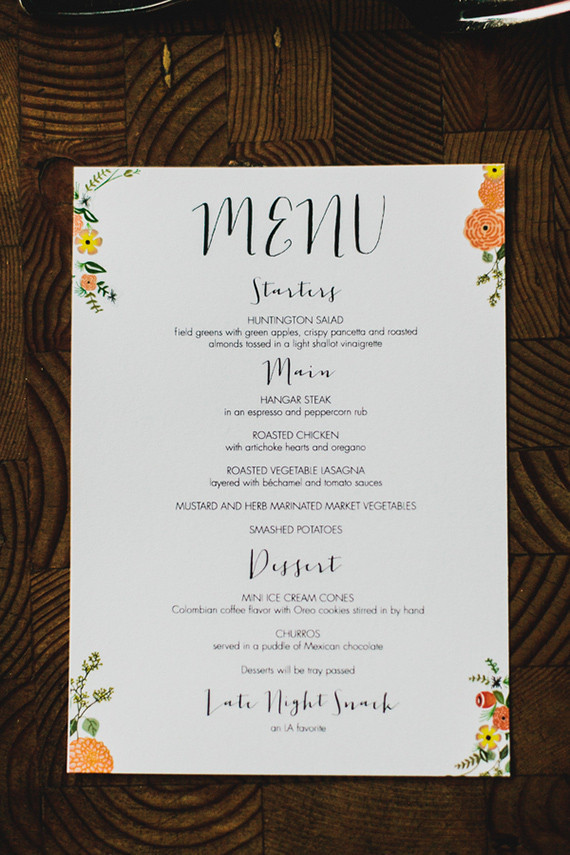 MENU
Starters
HUNTINGTON SALAD
field greens with green apples, crispy pancetta and roasted
almonds tossed in a light shallot vinaigrette
Main
HANGAR STEAK
in an espresso and peppercorn rub
ROASTED CHICKEN
with artichoke hearts and oregano
ROASTED VEGETABLE LASAGNA
layered with béchamel and tomato sauces
MUSTARD AND HERB MARINATED MARKET VEGETABLES
SMASHED POTATOES
Dessert
MINI ICE CREAM CONES
Colombian coffee flavor with Oreo cookies stirred in by hand
CHURROS
served in a puddle of Mexican chocolate
Desserts will be tray passed
Late Night Snack
an LA favorite